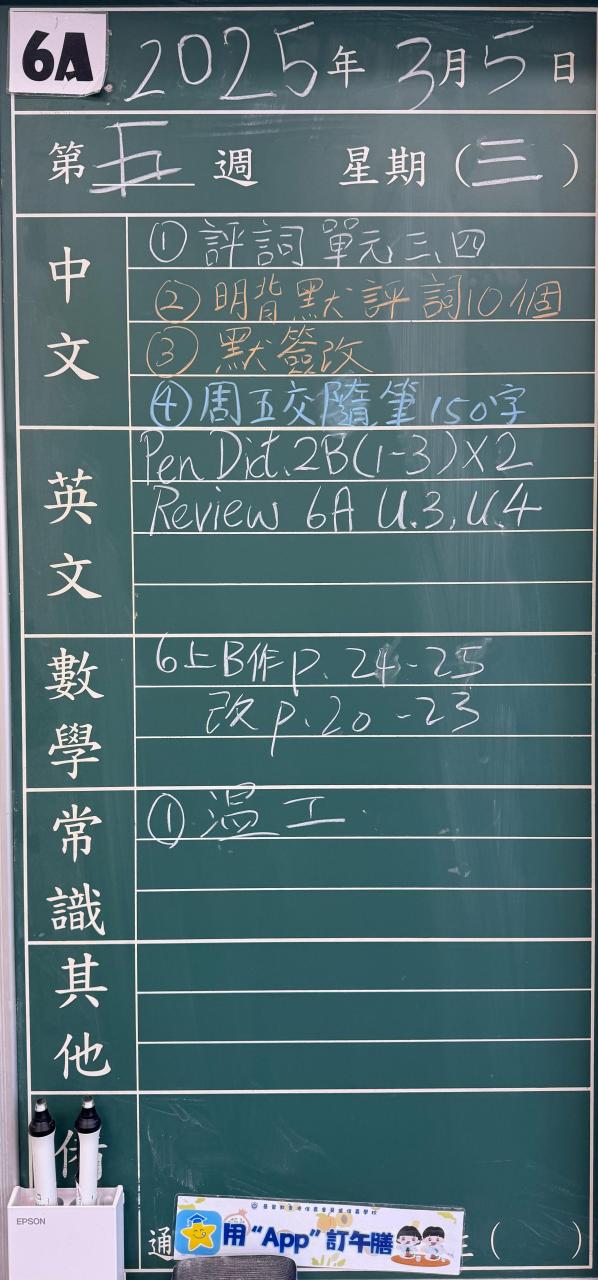 6A
2025年3月5日
第五週 星期(三)
中文
①評詞單元三、四
②明背默評詞10個
③默簽改
④周五交隨筆150字
英文
Pen Dict. 2B(1-3)X2
Review 6A U.3, U.4
數學
6上B作p. 24-25
改p. 20-23
常識
①溫工
其他
備
EPSON
通
用“App”訂午膳
( )